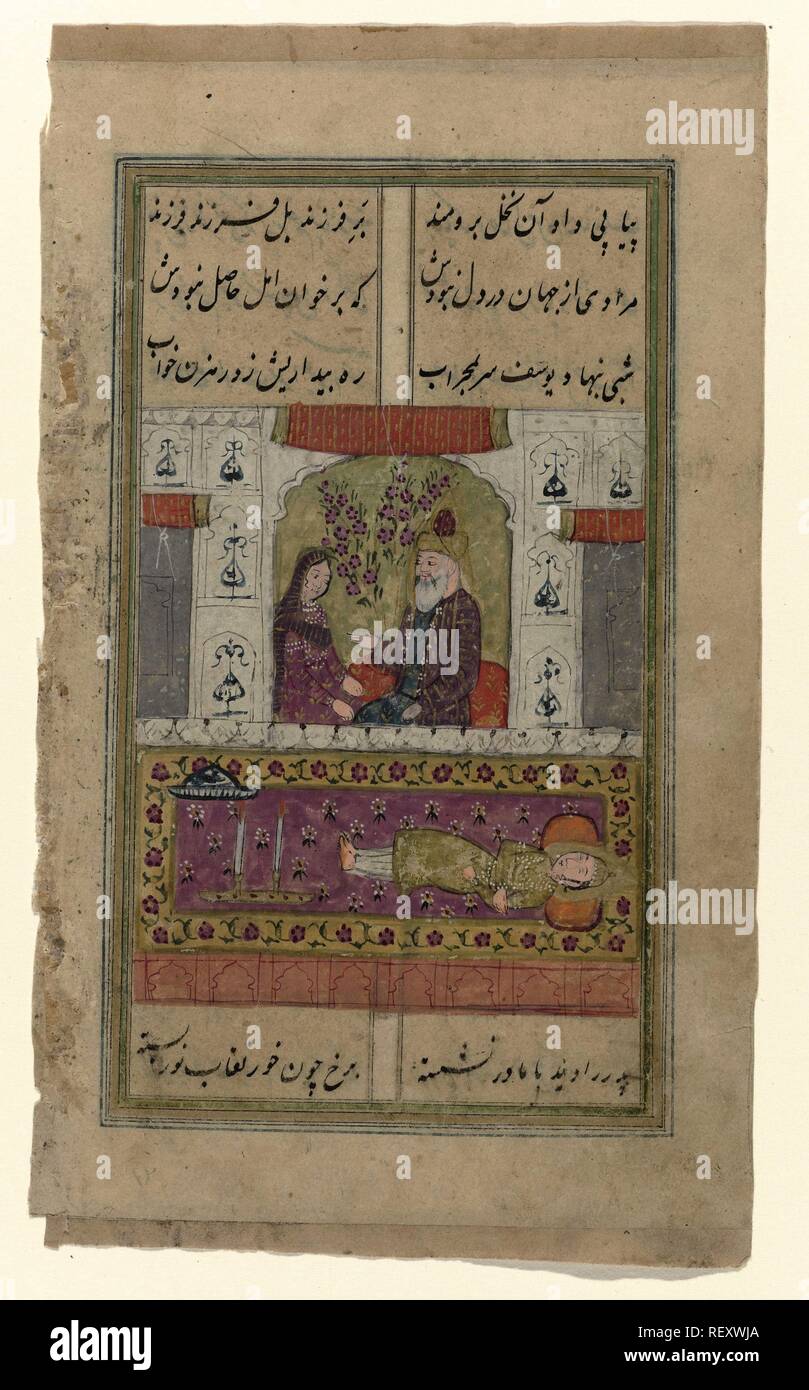 پیاپی داد آن نخل برومند
بَرِ فرزند بل فرزند فرزند
مرادی از جهان در دل نبودش
که بر خوان امل حاصل نبودش
شبی بنهاد یوسف سر بمحراب
ره بیداریش زد رهزن خواب
پدر را دید با مادر نشسته
برخ چون خور نقاب نور بسته
alamy
alamy
alamy
Image ID: REXWJA
www.alamy.com